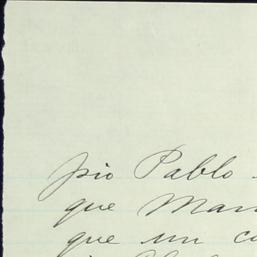 pio Pablo
que Man
que un co